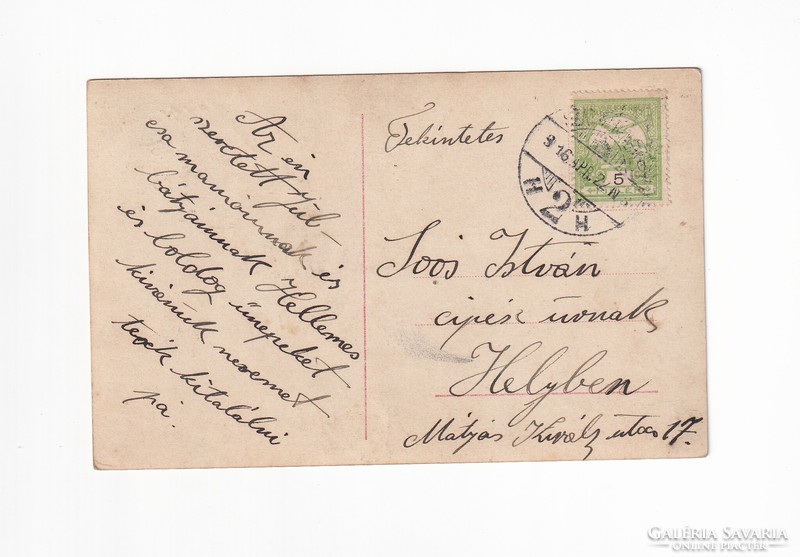 Az én
szeretett
és a mamámnak és
bátyáimnak Hellemes
és boldog ünnepeket
kivánunk nevemet
tessék kitalálni
pá.
Tekintetes
Soos István
cipész úrnak
Helyben
Mátyás Király utca 17.
916 APR. 22
5
GALÉRIA SAVARIA
ONLINE PIACTÉR